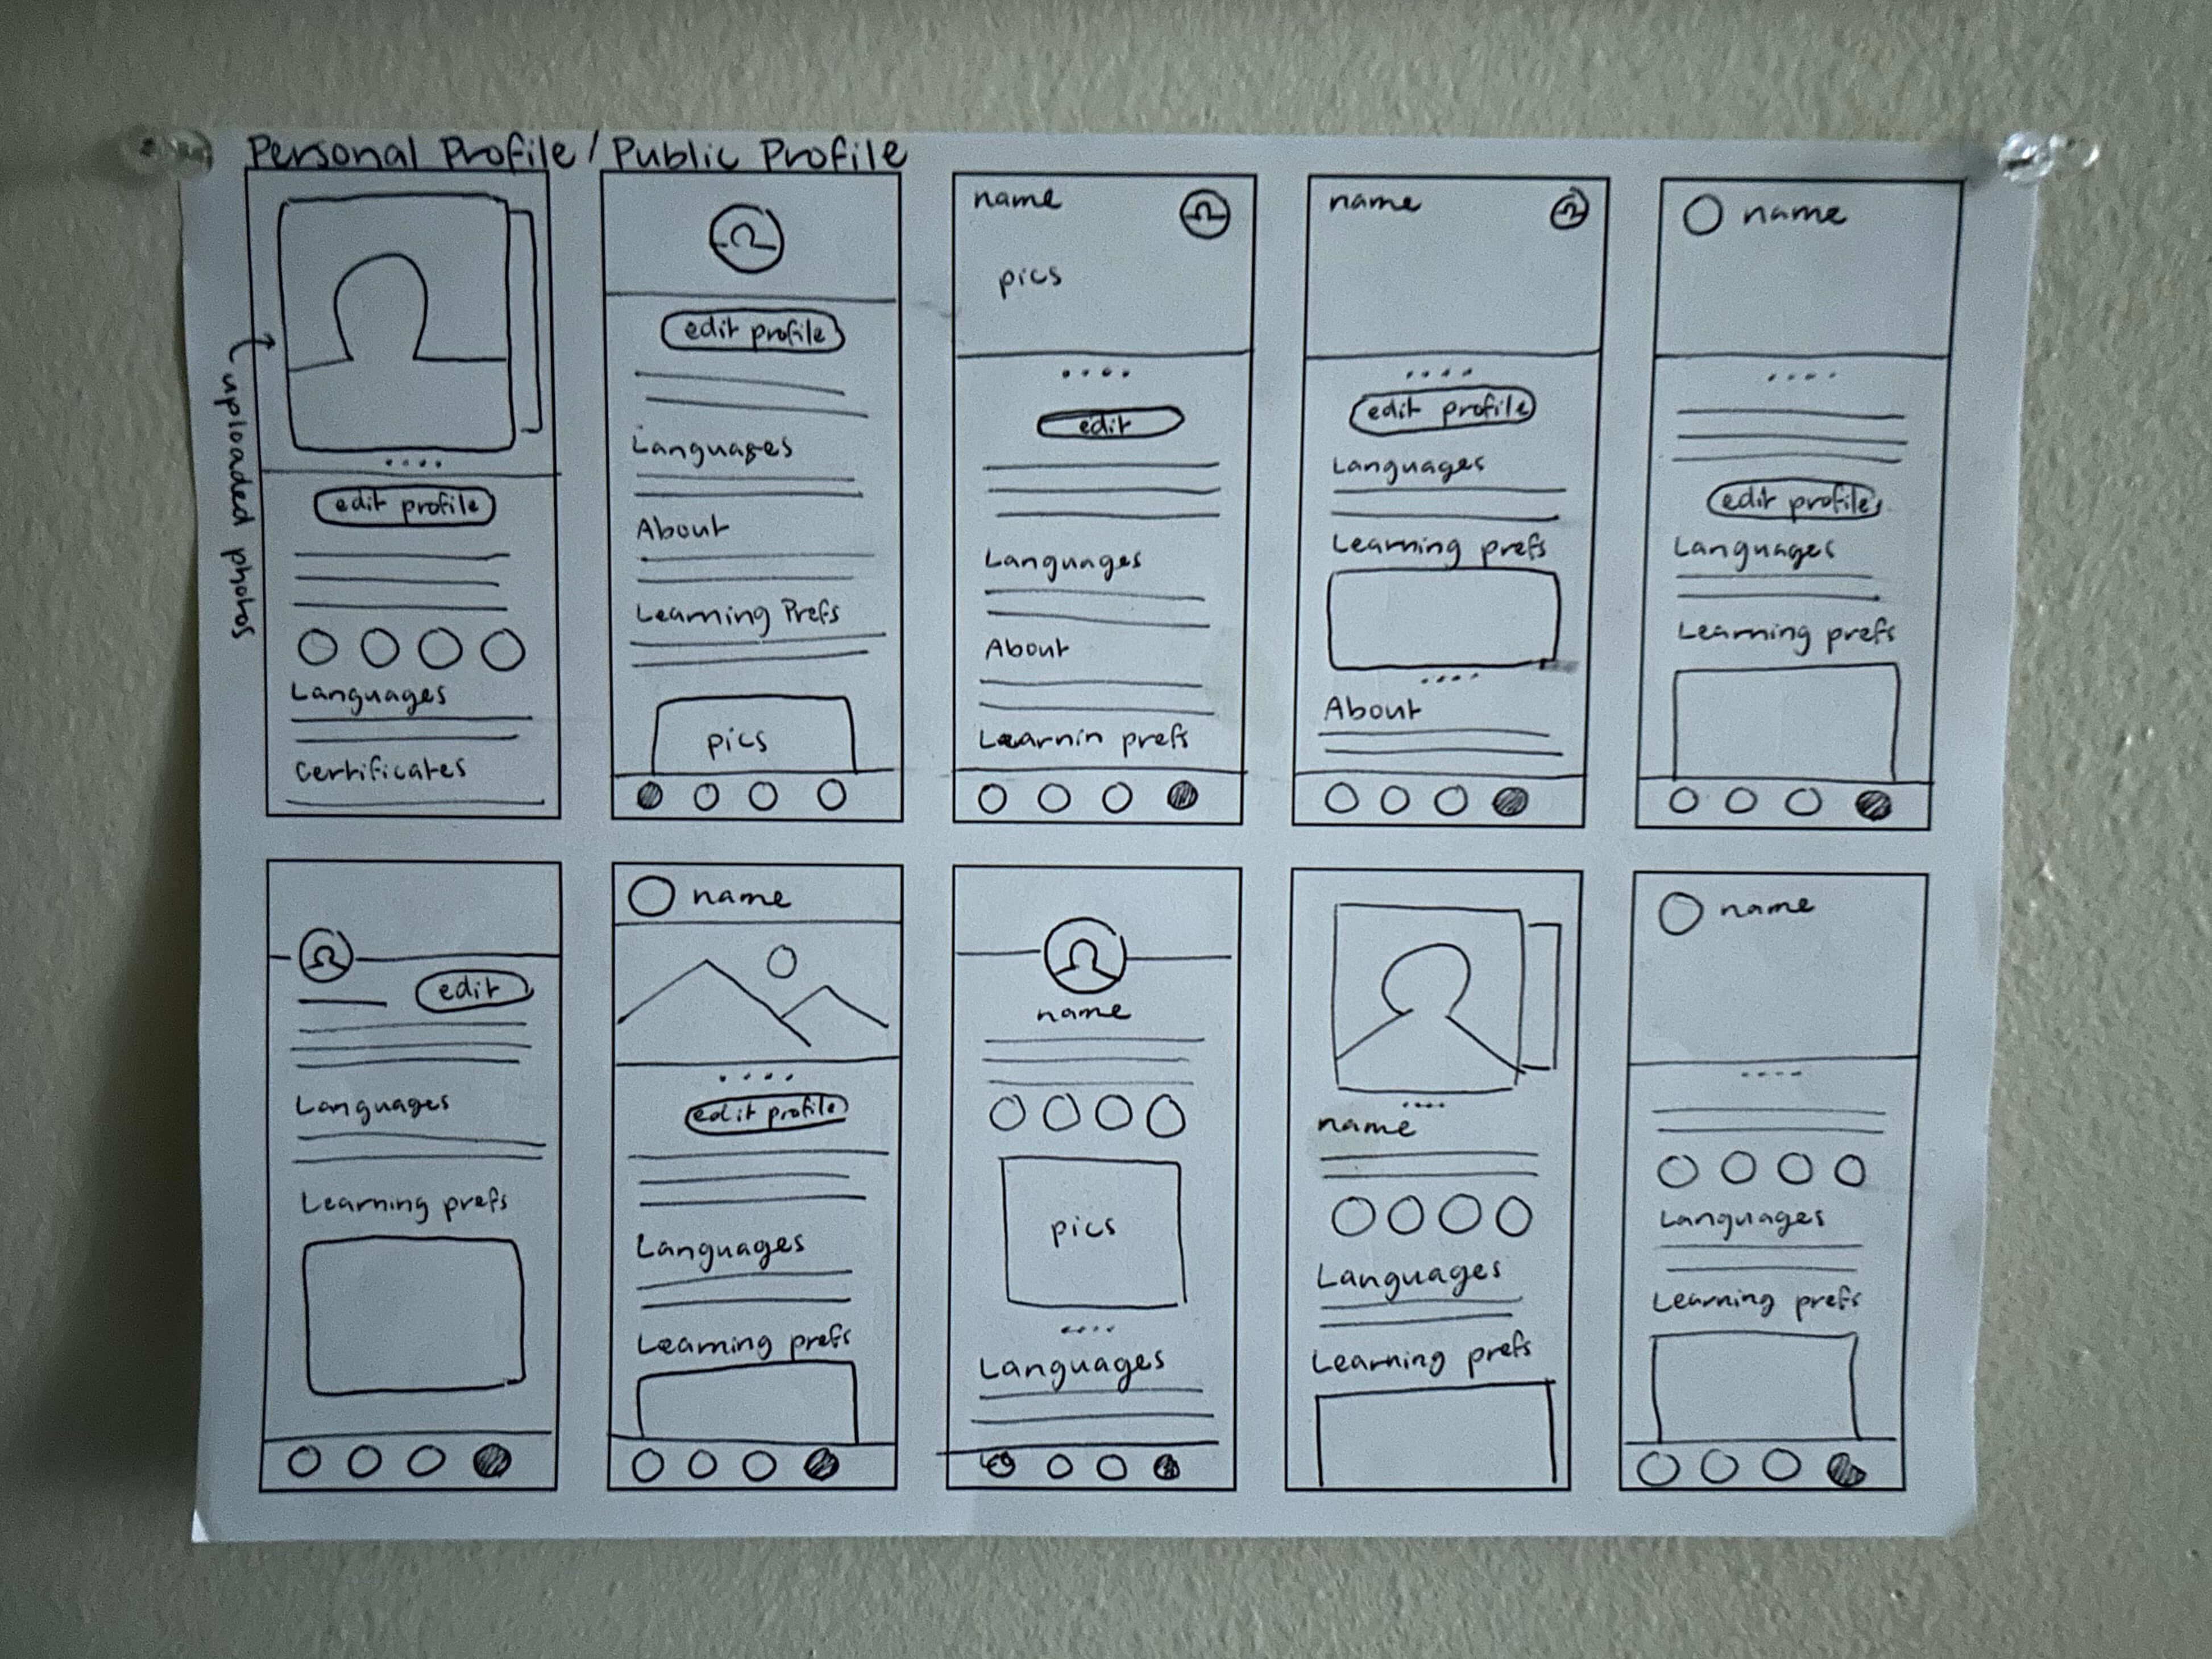 Personal Profile / Public Profile
uploaded photos
edit profile
Languages
Certificates
edit profile
Languages
About
Learning Prefs
pics
name
pics
edit
Languages
About
Learnin prefs
name
edit profile
Languages
Learning prefs
About
name
edit profile
Languages
Learning prefs
edit
Languages
Learning prefs
name
edit profile
Languages
Learning prefs
name
pics
Languages
name
Languages
Learning prefs
name
Languages
Learning prefs